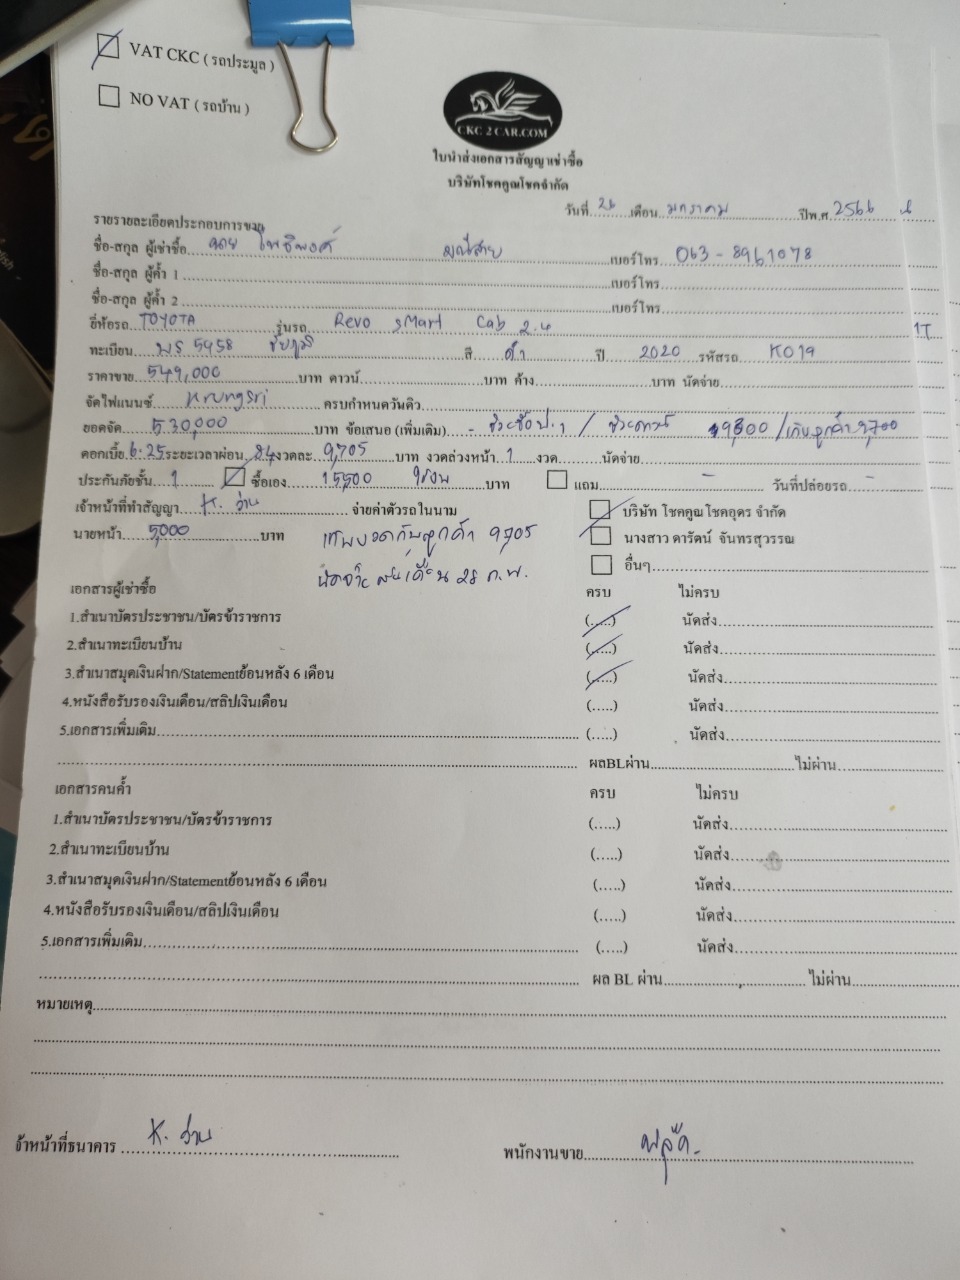 VAT CKC ( รถประมูล )
NO VAT ( รถบ้าน )
CKC 2 CAR.COM
ใบนำส่งเอกสารสัญญาเช่าซื้อ
บริษัทโชคคูณโชคจำกัด
วันที่ 26 เดือน มกราคม ปีพ.ศ. 2566
รายรายละเอียดประกอบการขาย
ชื่อ-สกุล ผู้เช่าซื้อ นาย โพธิพงศ์ มูณีสาย เบอร์โทร 063-8961078
ชื่อ-สกุล ผู้ค้ำ 1 เบอร์โทร
ชื่อ-สกุล ผู้ค้ำ 2 เบอร์โทร
ยี่ห้อรถ TOYOTA รุ่นรถ Revo sMart Cab 2.4
ทะเบียน 5458 ชัยภูมิ สี ดำ ปี 2020 รหัสรถ K019
ราคาขาย 549,000 บาท ดาวน์ บาท ค้าง บาท นัดจ่าย
จัดไฟแนนซ์ Krungsri ครบกำหนดวันคิว
ยอดจัด 530,000 บาท ข้อเสนอ (เพิ่มเติม) - ช่วยช้อป.1 / ช่วยดาวน์ / เก็บลูกค้า 9,700
ดอกเบี้ย 6.25 ระยะเวลาผ่อน 84 งวดละ 9,705 บาท งวดล่วงหน้า 1 งวด นัดจ่าย
ประกันภัยชั้น 1 ซื้อเอง 15,500 บาท แถม - วันที่ปล่อยรถ -
เจ้าหน้าที่ทำสัญญา K. ว่าน จ่ายค่าตัวรถในนาม บริษัท โชคคูณโชคอุดร จำกัด
นายหน้า 5,000 บาท เก็บงวดกับลูกค้า 9,705 นางสาว ดารัตน์ จันทรสุวรรณ
นัดจ่าย สิ้นเดือน 28 ก.พ. อื่นๆ
เอกสารผู้เช่าซื้อ ครบ ไม่ครบ
1.สำเนาบัตรประชาชน/บัตรข้าราชการ (.....) นัดส่ง
2.สำเนาทะเบียนบ้าน (.....) นัดส่ง
3.สำเนาสมุดเงินฝาก/Statementย้อนหลัง 6 เดือน (.....) นัดส่ง
4.หนังสือรับรองเงินเดือน/สลิปเงินเดือน (.....) นัดส่ง
5.เอกสารเพิ่มเติม (.....) นัดส่ง
ผลBLผ่าน ไม่ผ่าน
เอกสารคนค้ำ ครบ ไม่ครบ
1.สำเนาบัตรประชาชน/บัตรข้าราชการ (.....) นัดส่ง
2.สำเนาทะเบียนบ้าน (.....) นัดส่ง
3.สำเนาสมุดเงินฝาก/Statementย้อนหลัง 6 เดือน (.....) นัดส่ง
4.หนังสือรับรองเงินเดือน/สลิปเงินเดือน (.....) นัดส่ง
5.เอกสารเพิ่มเติม (.....) นัดส่ง
ผล BL ผ่าน ไม่ผ่าน
หมายเหตุ
จ้าหน้าที่ธนาคาร K. ว่าน พนักงานขาย